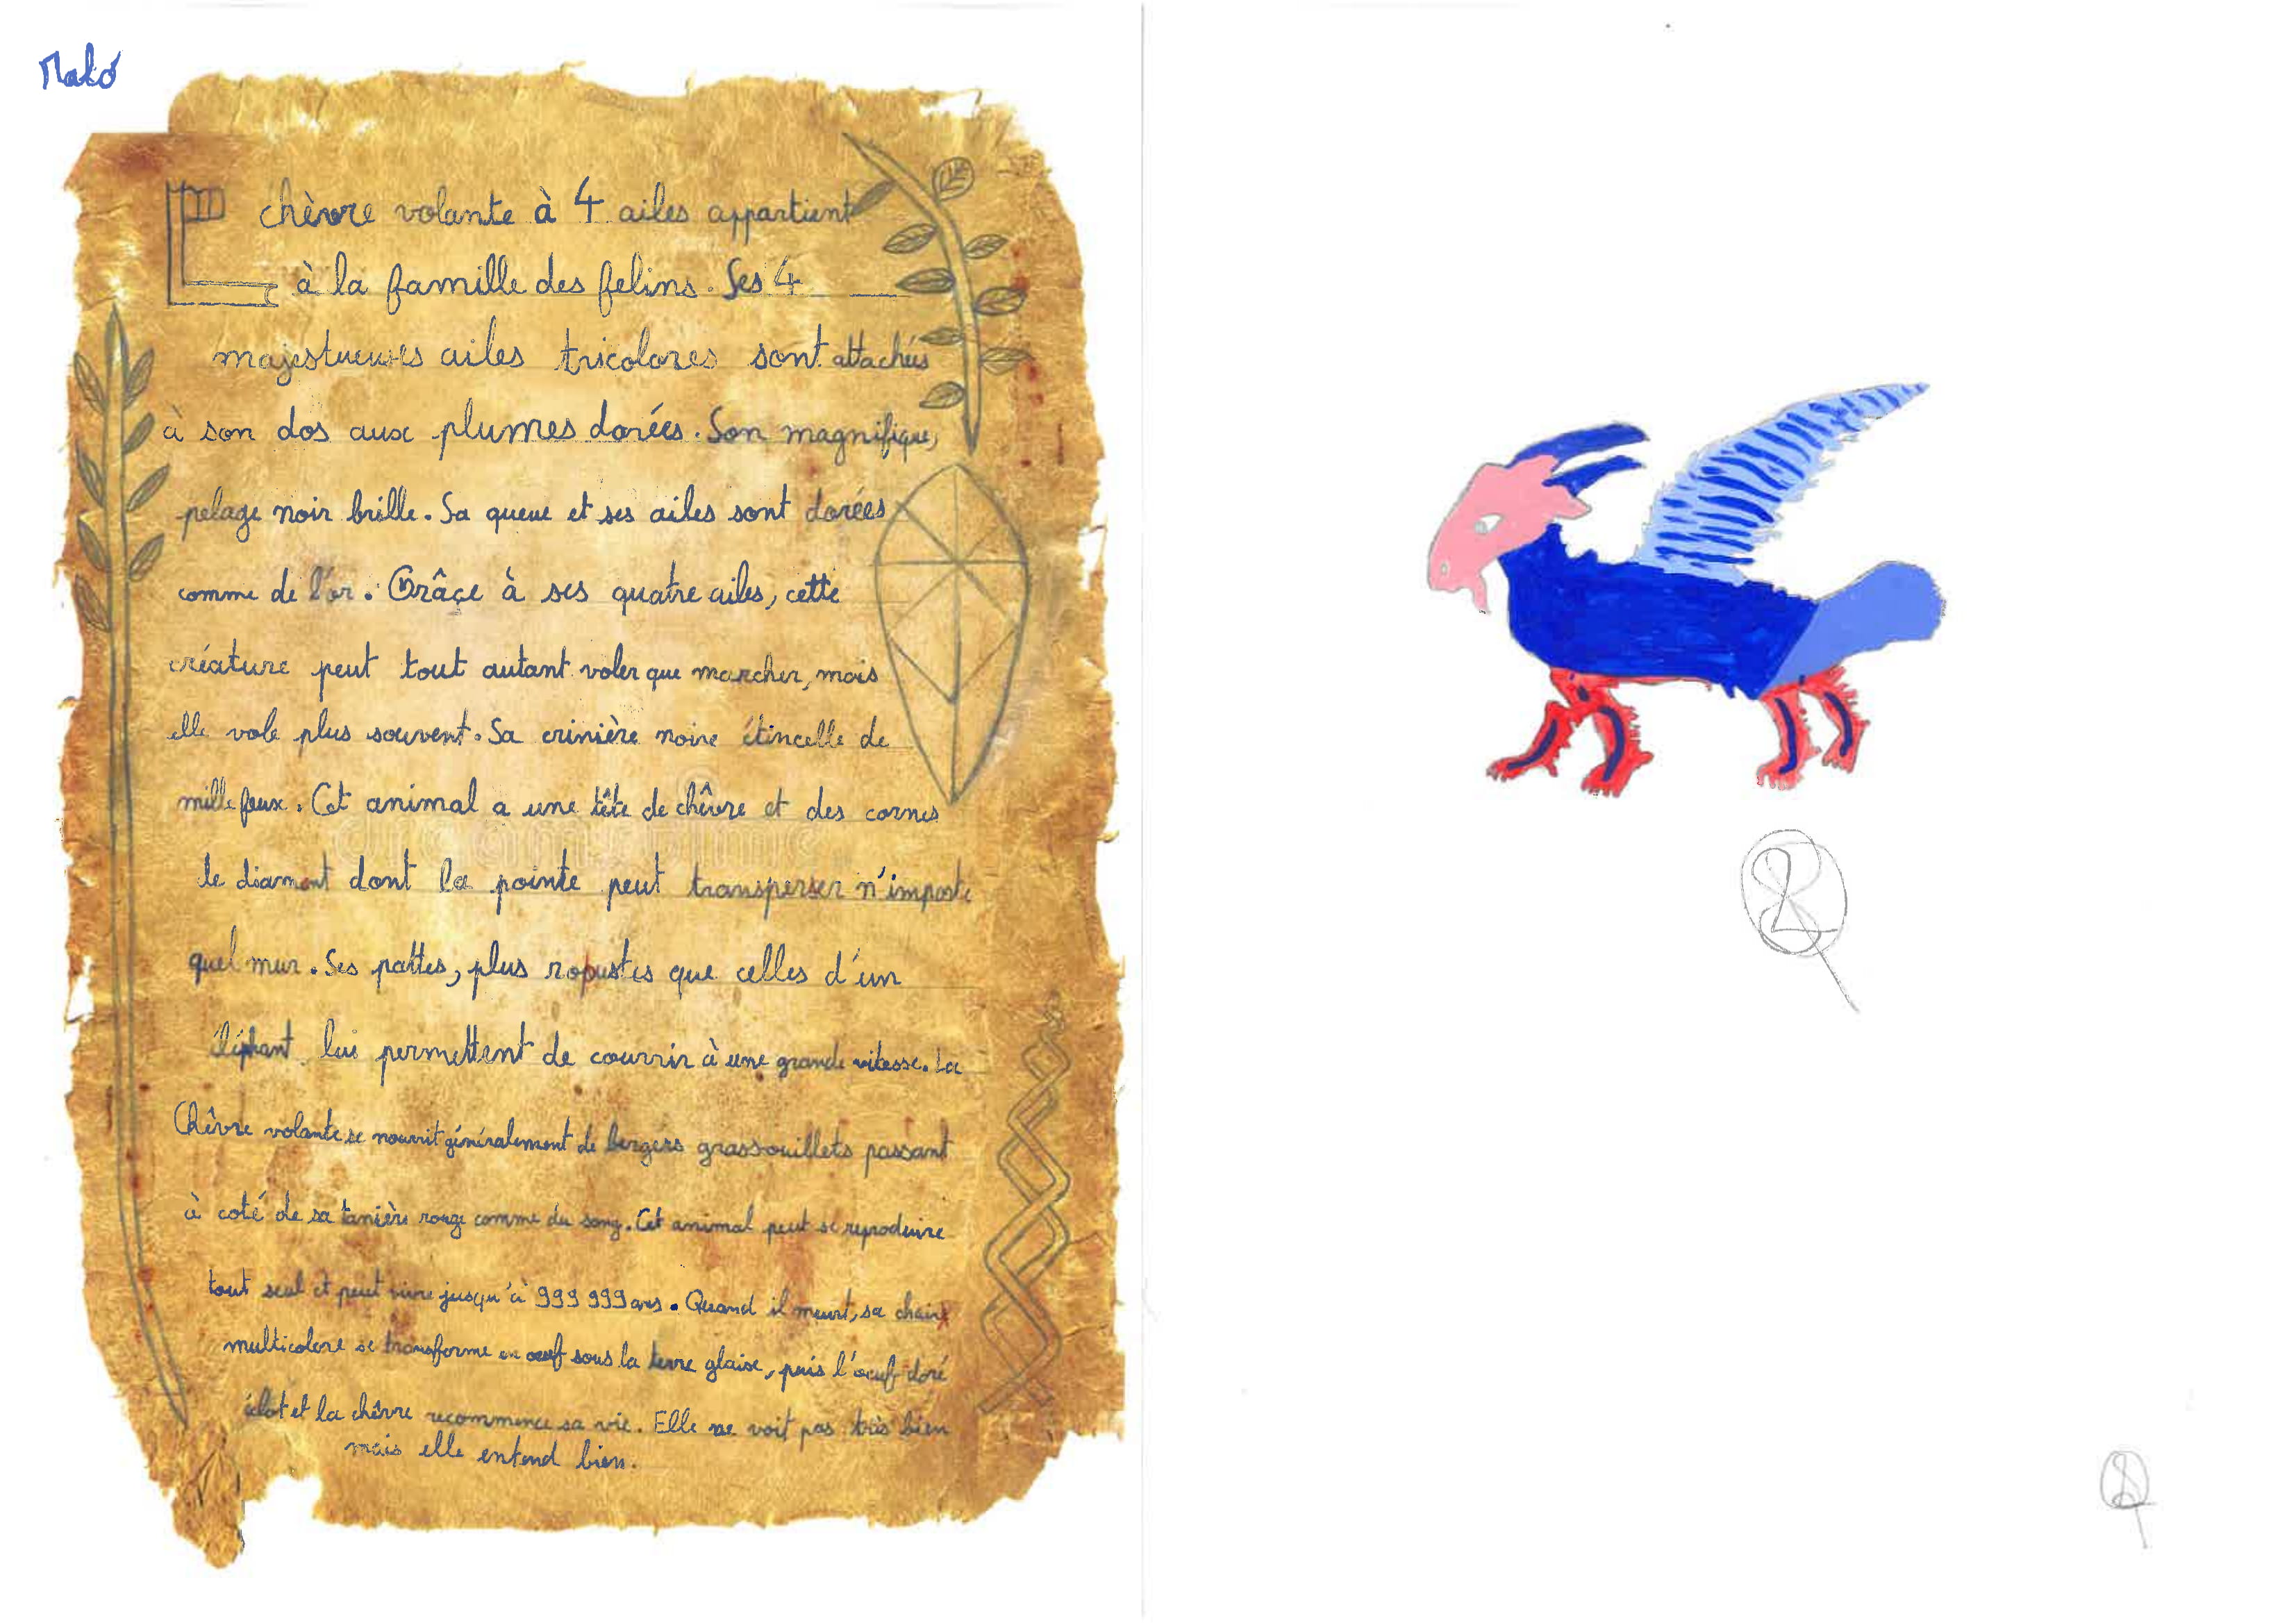 Malo
La chèvre volante à 4 ailes appartient
à la famille des felins. Ses 4
majestueuses ailes tricolores sont attachées
à son dos aux plumes dorées. Son magnifique,
pelage noir brille. Sa queue et ses ailes sont dorées
comme de l'or. Grâçe à ses quatre ailes, cette
créature peut tout autant voler que marcher, mais
elle vole plus souvent. Sa crinière noire étincelle de
mille feux. Cet animal a une tête de chêvre et des cornes
de diamant dont la pointe peut transperser n'importe
quel mur. Ses pattes, plus ropustes que celles d'un
éléphant, lui permettent de courrir à une grande vitesse. La
Chêvre volante se nourrit généralement de bergers grassouillets passant
à coté de sa tanière rouge comme du sang. Cet animal peut se reproduire
tout seul et peut vivre jusqu'à 999 999 ans. Quand il meurt, sa chair
multicolore se transforme en oeuf sous la terre glaise, puis l'oeuf doré
éclot et la chêvre recommence sa vie. Elle ne voit pas très bien
mais elle entend bien.